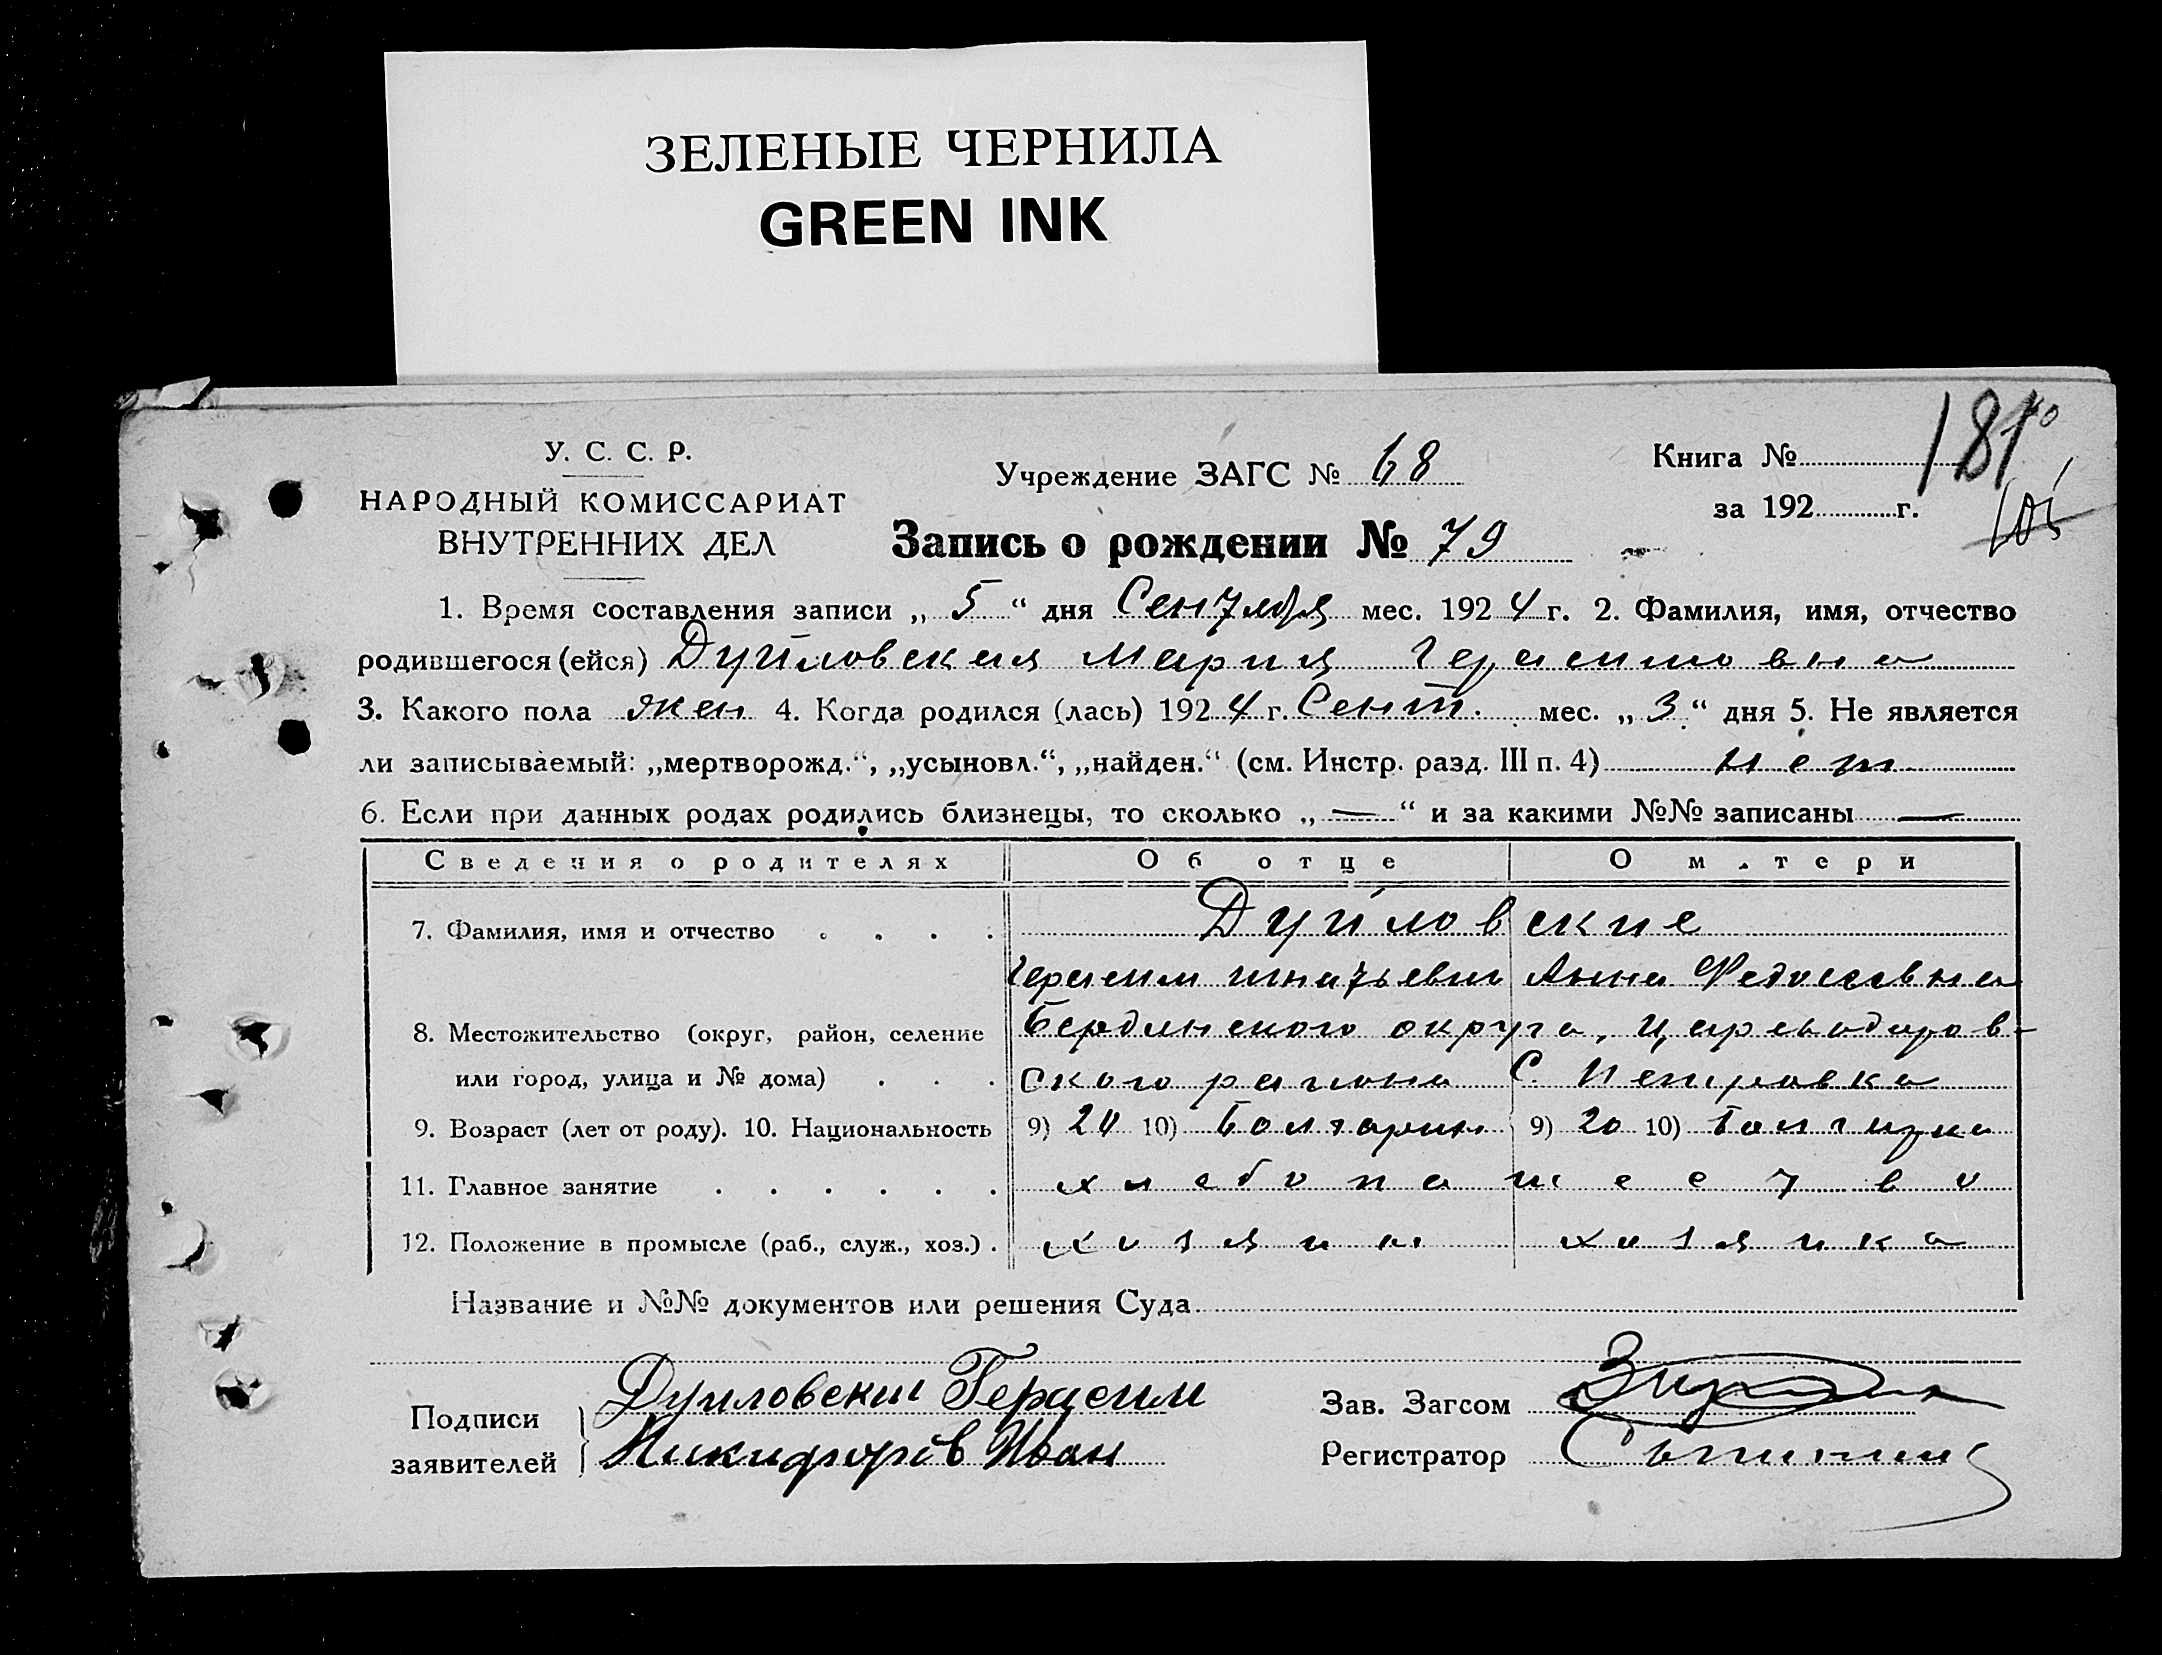 ЗЕЛЕНЫЕ ЧЕРНИЛА
GREEN INK
У. С. С. Р.
НАРОДНЫЙ КОМИССАРИАТ
ВНУТРЕННИХ ДЕЛ
Учреждение ЗАГС № 68
Книга №
за 192 г.
181
Запись о рождении № 79
1. Время составления записи „ 5 “ дня Сентября мес. 192 4 г. 2. Фамилия, имя, отчество
родившегося (ейся) Дуйловская Мария Герасимовна
3. Какого пола жен 4. Когда родился (лась) 192 4 г. Сент. мес. „ 3 “ дня 5. Не является
ли записываемый: „мертворожд.“, „усыновл.“, „найден.“ (см. Инстр. разд. III п. 4) нет
6. Если при данных родах родились близнецы, то сколько „ — “ и за какими №№ записаны —
Сведения о родителях Об отце О матери
7. Фамилия, имя и отчество . . . . Дуйловские
Герасим Игнатьевич Анна Федосеевна
8. Местожительство (округ, район, селение Бердянского округа, Цареводаров-
или город, улица и № дома) . . . ского района С. Петровка
9. Возраст (лет от роду). 10. Национальность 9) 20 10) Болгарин 9) 20 10) Болгарка
11. Главное занятие . . . . . . хлебопашество
12. Положение в промысле (раб., служ., хоз.) . хозяин хозяйка
Название и №№ документов или решения Суда
Подписи Дуиловски Герасим Зав. Загсом
заявителей Никифоров Иван Регистратор